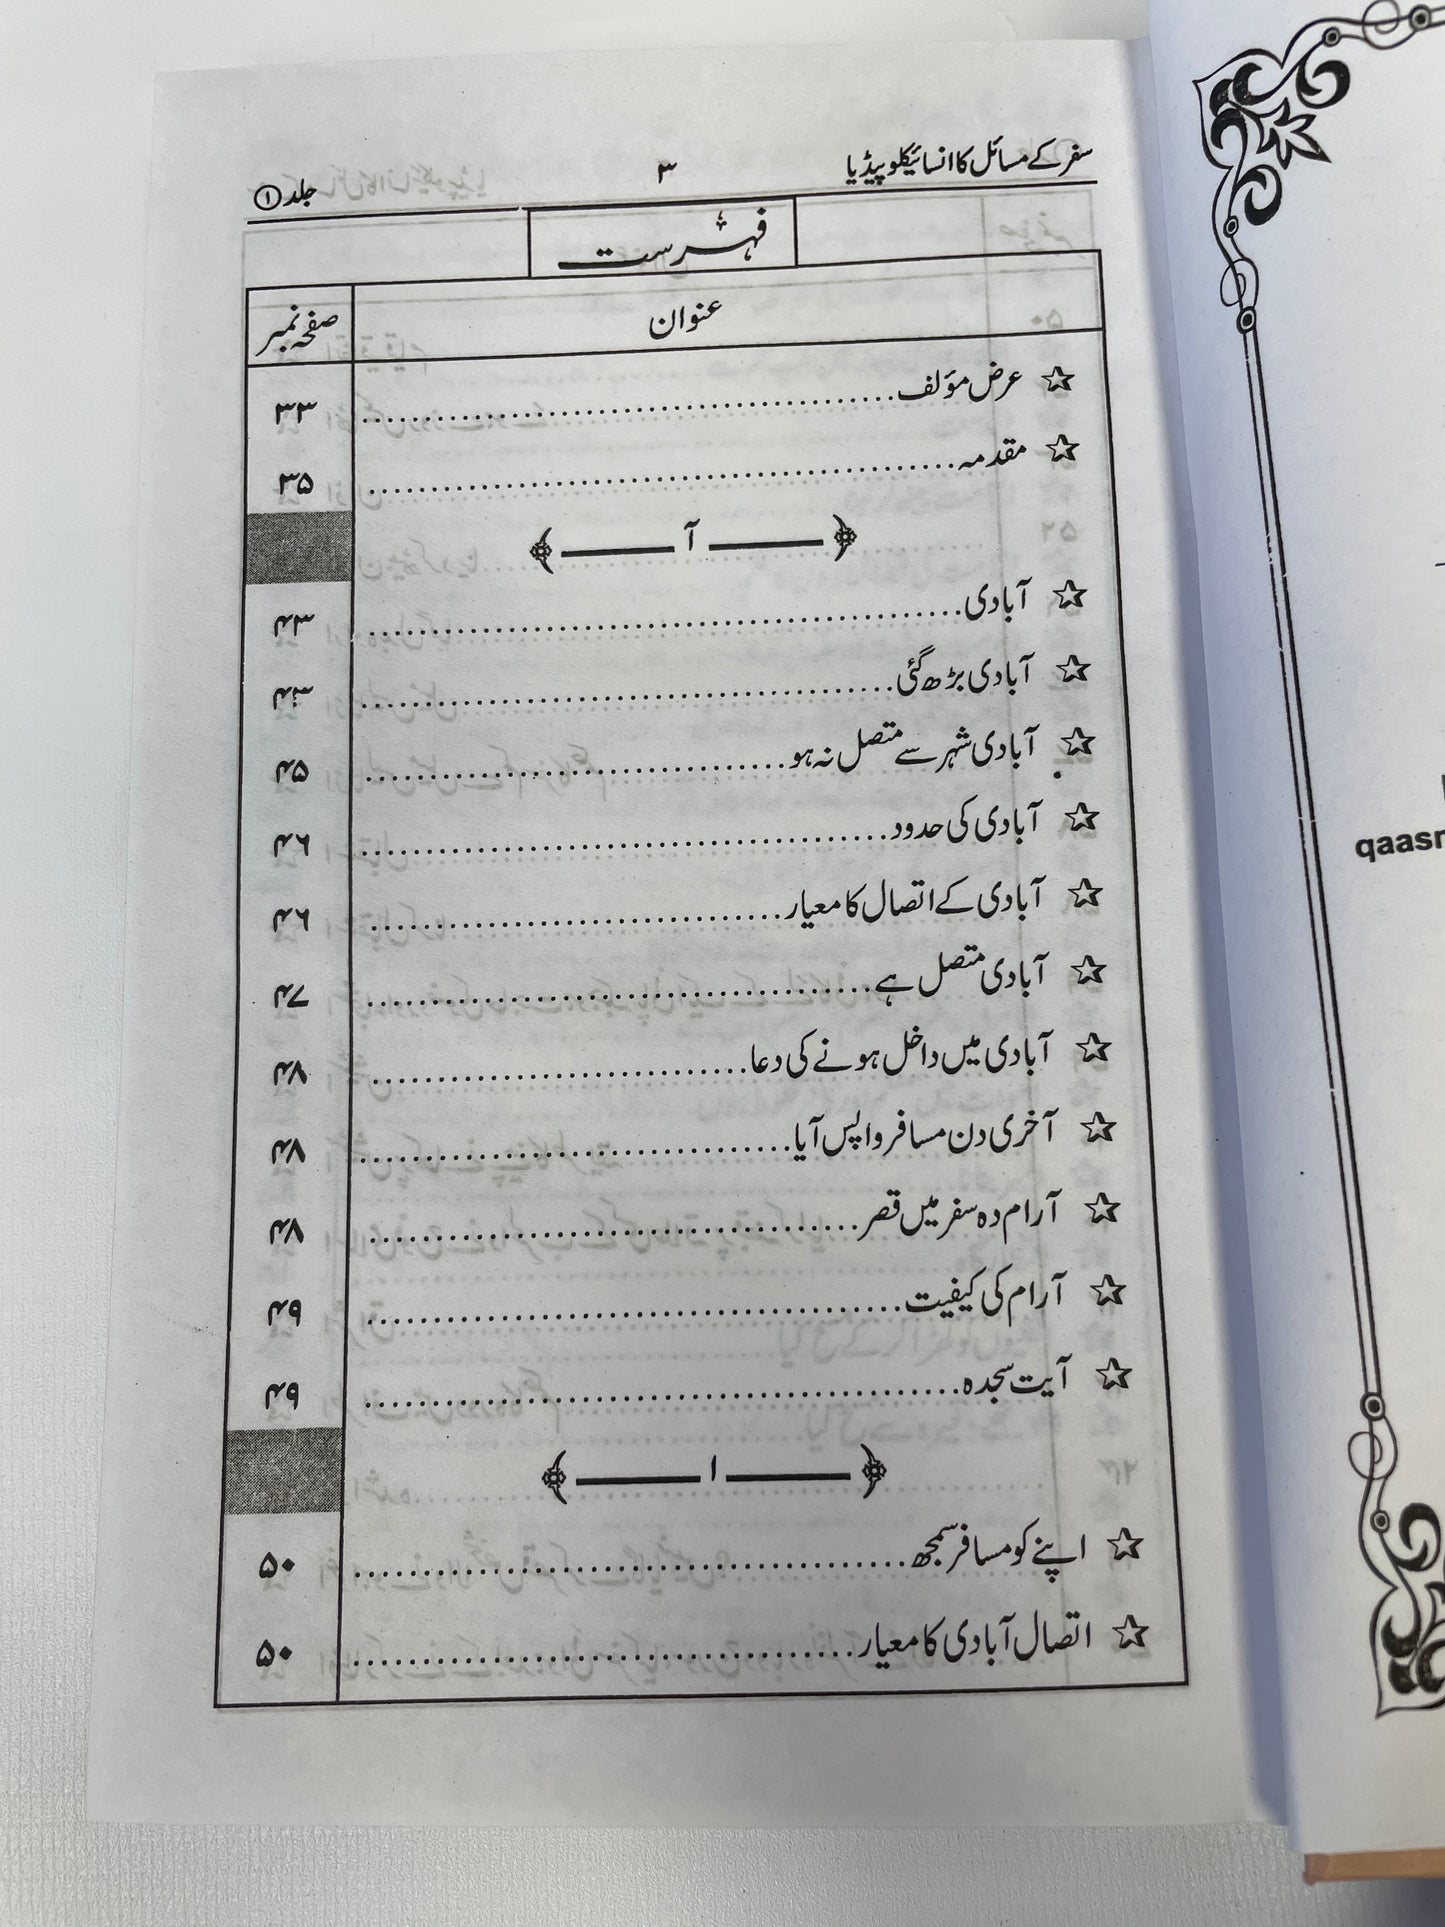 سفر کے مسائل کا انسائیکلوپیڈیا ۳ جلد ①
فہرست
عنوان صفحہ نمبر
☆ عرض مؤلف ۳۳
☆ مقدمہ ۳۵
آ
☆ آبادی ۴۳
☆ آبادی بڑھ گئی ۴۳
☆ آبادی شہر سے متصل نہ ہو ۴۵
☆ آبادی کی حدود ۴۶
☆ آبادی کے اتصال کا معیار ۴۶
☆ آبادی متصل ہے ۴۷
☆ آبادی میں داخل ہونے کی دعا ۴۸
☆ آخری دن مسافر واپس آیا ۴۸
☆ آرام دہ سفر میں قصر ۴۸
☆ آرام کی کیفیت ۴۹
☆ آیت سجدہ ۴۹
ا
☆ اپنے کو مسافر سمجھ ۵۰
☆ اتصال آبادی کا معیار ۵۰